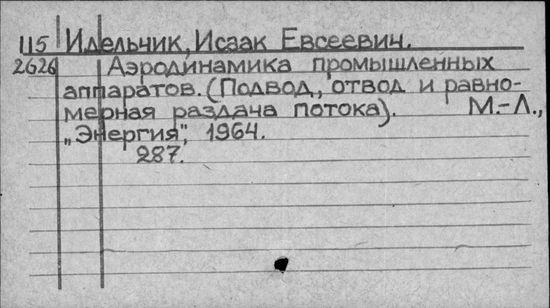 115 Идельчик, Исаак Евсеевич.
2626 Аэродинамика промышленных
аппаратов. (Подвод, отвод и равно-
мерная раздача потока). М.-Л.,
„Энергия", 1964.
287.